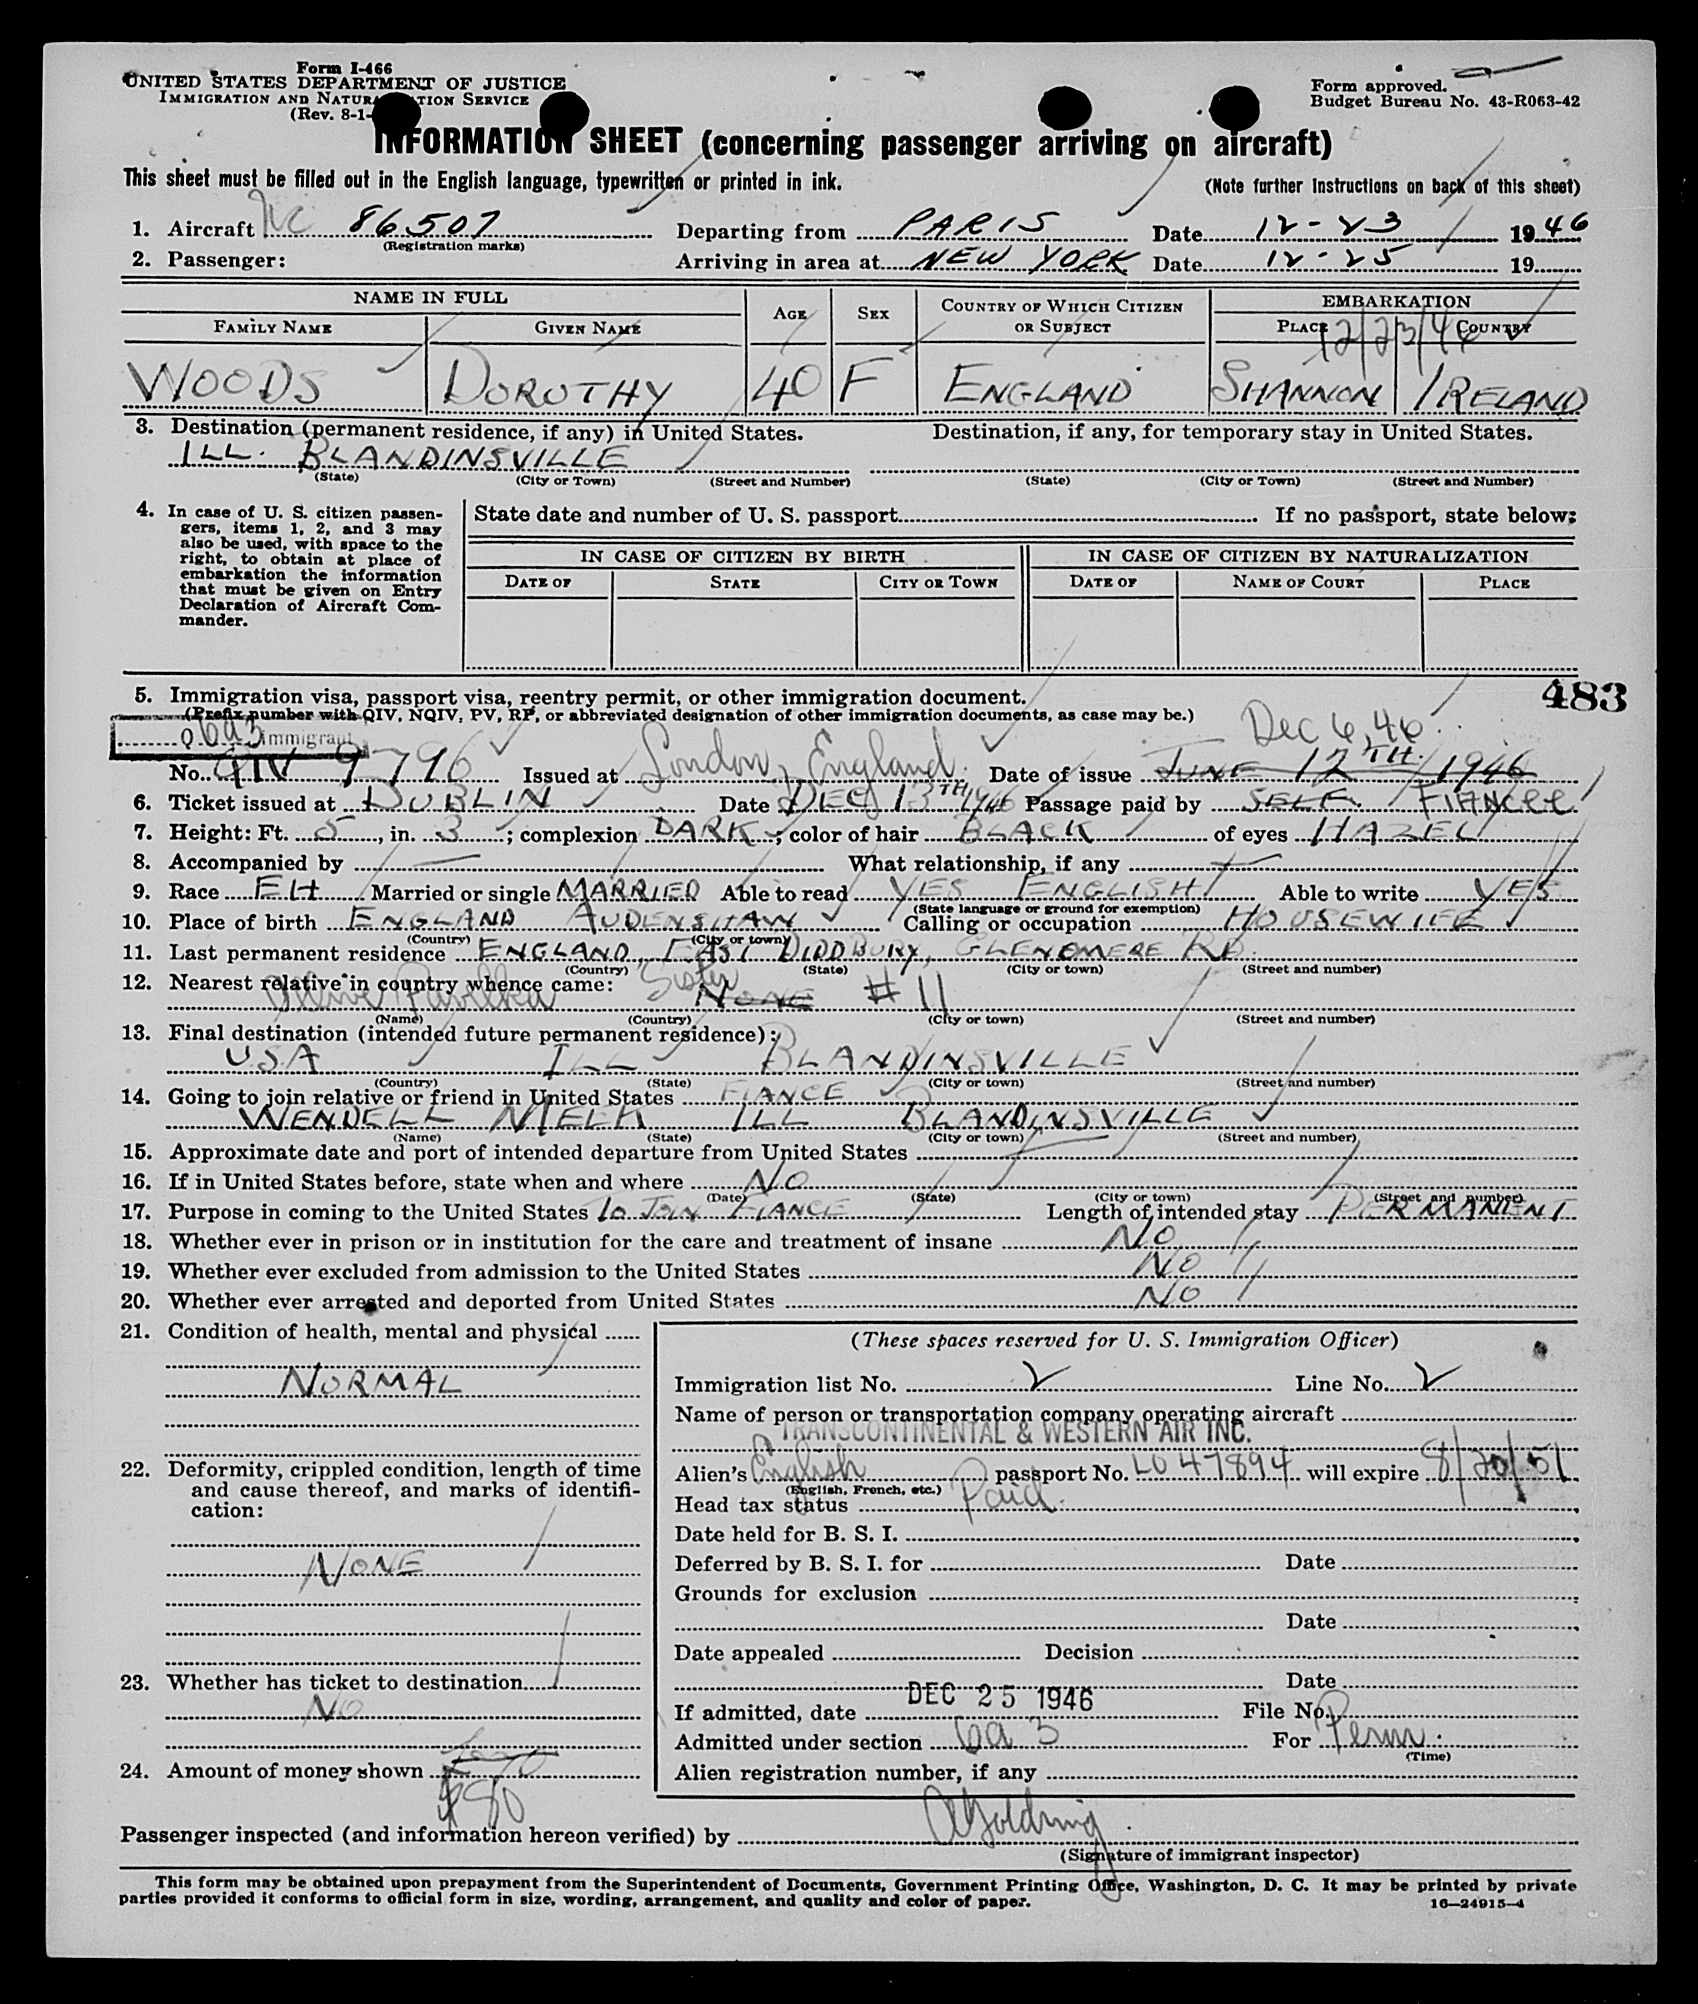 Form I-466
UNITED STATES DEPARTMENT OF JUSTICE
IMMIGRATION AND NATURALIZATION SERVICE
(Rev. 8-1-
Form approved.
Budget Bureau No. 43-R063-42
INFORMATION SHEET (concerning passenger arriving on aircraft)
This sheet must be filled out in the English language, typewritten or printed in ink.
(Note further instructions on back of this sheet)
1. Aircraft NC 86507 Departing from PARIS Date 12-23 1946
(Registration marks)
2. Passenger: Arriving in area at NEW YORK Date 12-25 19
NAME IN FULL AGE SEX COUNTRY OF WHICH CITIZEN OR SUBJECT EMBARKATION
FAMILY NAME GIVEN NAME PLACE COUNTRY
12/23/46
WOODS DOROTHY 40 F ENGLAND SHANNON IRELAND
3. Destination (permanent residence, if any) in United States. Destination, if any, for temporary stay in United States.
ILL. BLANDINSVILLE
(State) (City or Town) (Street and Number) (State) (City or Town) (Street and Number)
4. In case of U. S. citizen passengers, items 1, 2, and 3 may also be used, with space to the right, to obtain at place of embarkation the information that must be given on Entry Declaration of Aircraft Commander.
State date and number of U. S. passport If no passport, state below:
IN CASE OF CITIZEN BY BIRTH IN CASE OF CITIZEN BY NATURALIZATION
DATE OF STATE CITY OR TOWN DATE OF NAME OF COURT PLACE
483
5. Immigration visa, passport visa, reentry permit, or other immigration document.
(Prefix number with QIV, NQIV, PV, RP, or abbreviated designation of other immigration documents, as case may be.)
Q 6a3 immigrant Dec 6, 46
No. QIV 9796 Issued at London, England Date of issue JUNE 12TH. 1946
6. Ticket issued at DUBLIN Date DEC 13TH 1946 Passage paid by SELF. FIANCEE
7. Height: Ft. 5, in. 3; complexion DARK; color of hair BLACK of eyes HAZEL
8. Accompanied by — What relationship, if any —
9. Race EH Married or single MARRIED Able to read YES ENGLISH Able to write YES
(State language or ground for exemption)
10. Place of birth ENGLAND AUDENSHAW Calling or occupation HOUSEWIFE
(Country) (City or town)
11. Last permanent residence ENGLAND, EAST DIDDBURY, GLENDMERE RD.
(Country) (State) (City or town) (Street and number)
12. Nearest relative in country whence came: Sister
NONE # 11
(Name) (Country) (City or town) (Street and number)
13. Final destination (intended future permanent residence):
U.S.A ILL BLANDINSVILLE
(Country) (State) (City or town) (Street and number)
14. Going to join relative or friend in United States FIANCE
WENDELL MEEK ILL BLANDINSVILLE
(Name) (State) (City or town) (Street and number)
15. Approximate date and port of intended departure from United States —
16. If in United States before, state when and where NO
(Date) (State) (City or town) (Street and number)
17. Purpose in coming to the United States To JOIN FIANCE Length of intended stay PERMANENT
18. Whether ever in prison or in institution for the care and treatment of insane NO
19. Whether ever excluded from admission to the United States NO
20. Whether ever arrested and deported from United States NO
21. Condition of health, mental and physical
NORMAL
22. Deformity, crippled condition, length of time and cause thereof, and marks of identification:
NONE
23. Whether has ticket to destination
NO
24. Amount of money shown
$80
(These spaces reserved for U. S. Immigration Officer)
Immigration list No. 2 Line No. 2
Name of person or transportation company operating aircraft
TRANSCONTINENTAL & WESTERN AIR INC.
Alien's English passport No. LO 47894 will expire 8/20/51
(English, French, etc.)
Head tax status Paid
Date held for B. S. I.
Deferred by B. S. I. for Date
Grounds for exclusion
Date
Date appealed Decision
Date
If admitted, date DEC 25 1946 File No.
Admitted under section 6a3 For Perm.
(Time)
Alien registration number, if any
Passenger inspected (and information hereon verified) by
(Signature of immigrant inspector)
This form may be obtained upon prepayment from the Superintendent of Documents, Government Printing Office, Washington, D. C. It may be printed by private
parties provided it conforms to official form in size, wording, arrangement, and quality and color of paper.
16—24915-4